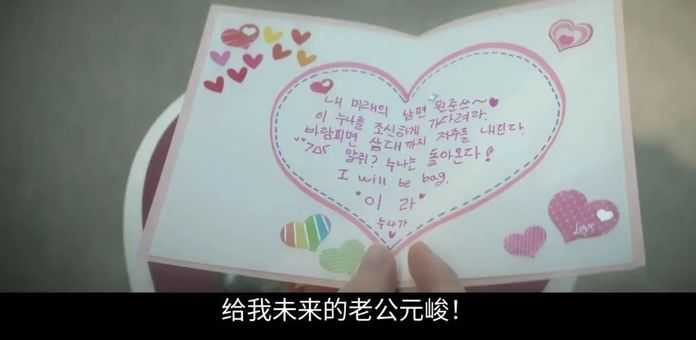 내 미래의 남편 원준쓰~
이 누나를 조신하게 기다려라.
바람피면 삼대까지 저주를 내린다.
알쥐? 누나는 돌아온다!
I will be bag.
이 라
누나가
Love
给我未来的老公元峻!